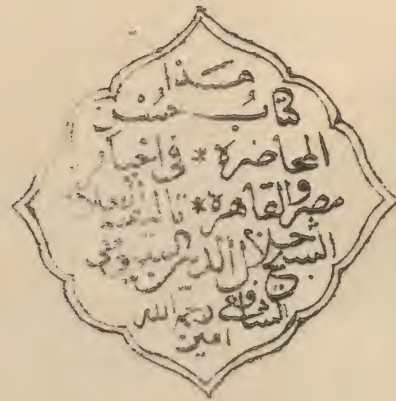 هذا
كتاب حسن
المحاضرة * في اخبار
مصر والقاهرة * تاليف
الشيخ جلال الدين السيوطي
الشافعي رحمه الله
امين